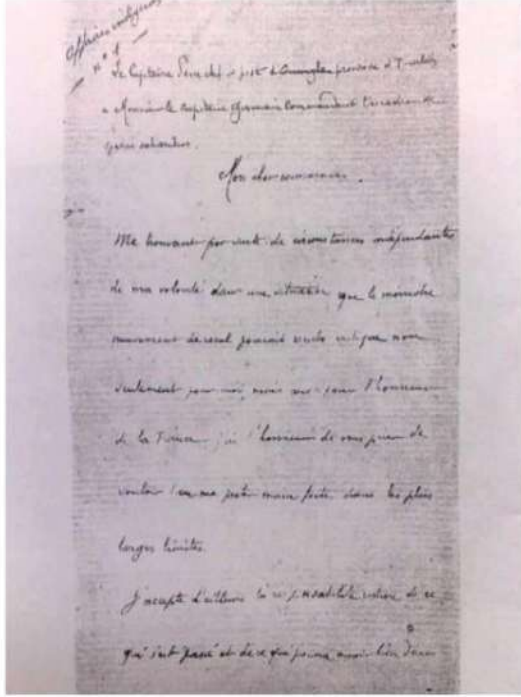 affaires indigènes
N° 1
Le Capitaine chef poste d province
a Monsieur le capitaine Germain Commandant
Mon cher commandant.
Me trouvant par suite de circonstances indépendantes
de ma volonté dans une situation que le moindre
mouvement de recul pourrait rendre critique non
seulement pour moi, mais pour l'honneur
de la France j'ai l'honneur de vous prier de
vouloir me prêter main forte, dans les plus
larges limites.
J'accepte d'ailleurs la responsabilité entière de ce
qui s'est passé et de ce que pourra avoir lieu dans